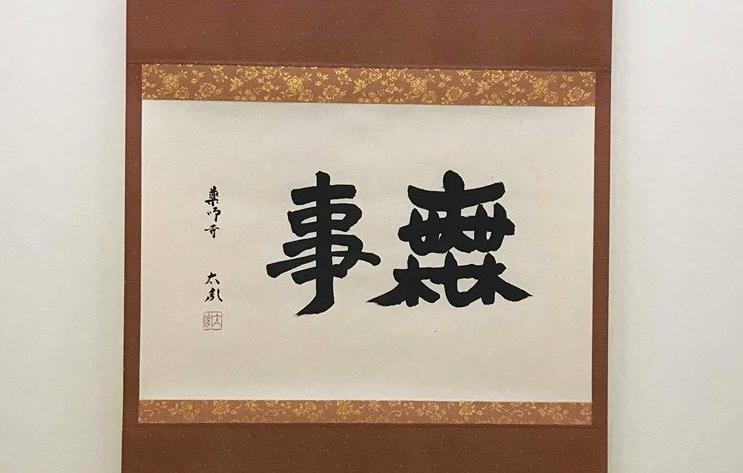 無事
薬師寺 太胤